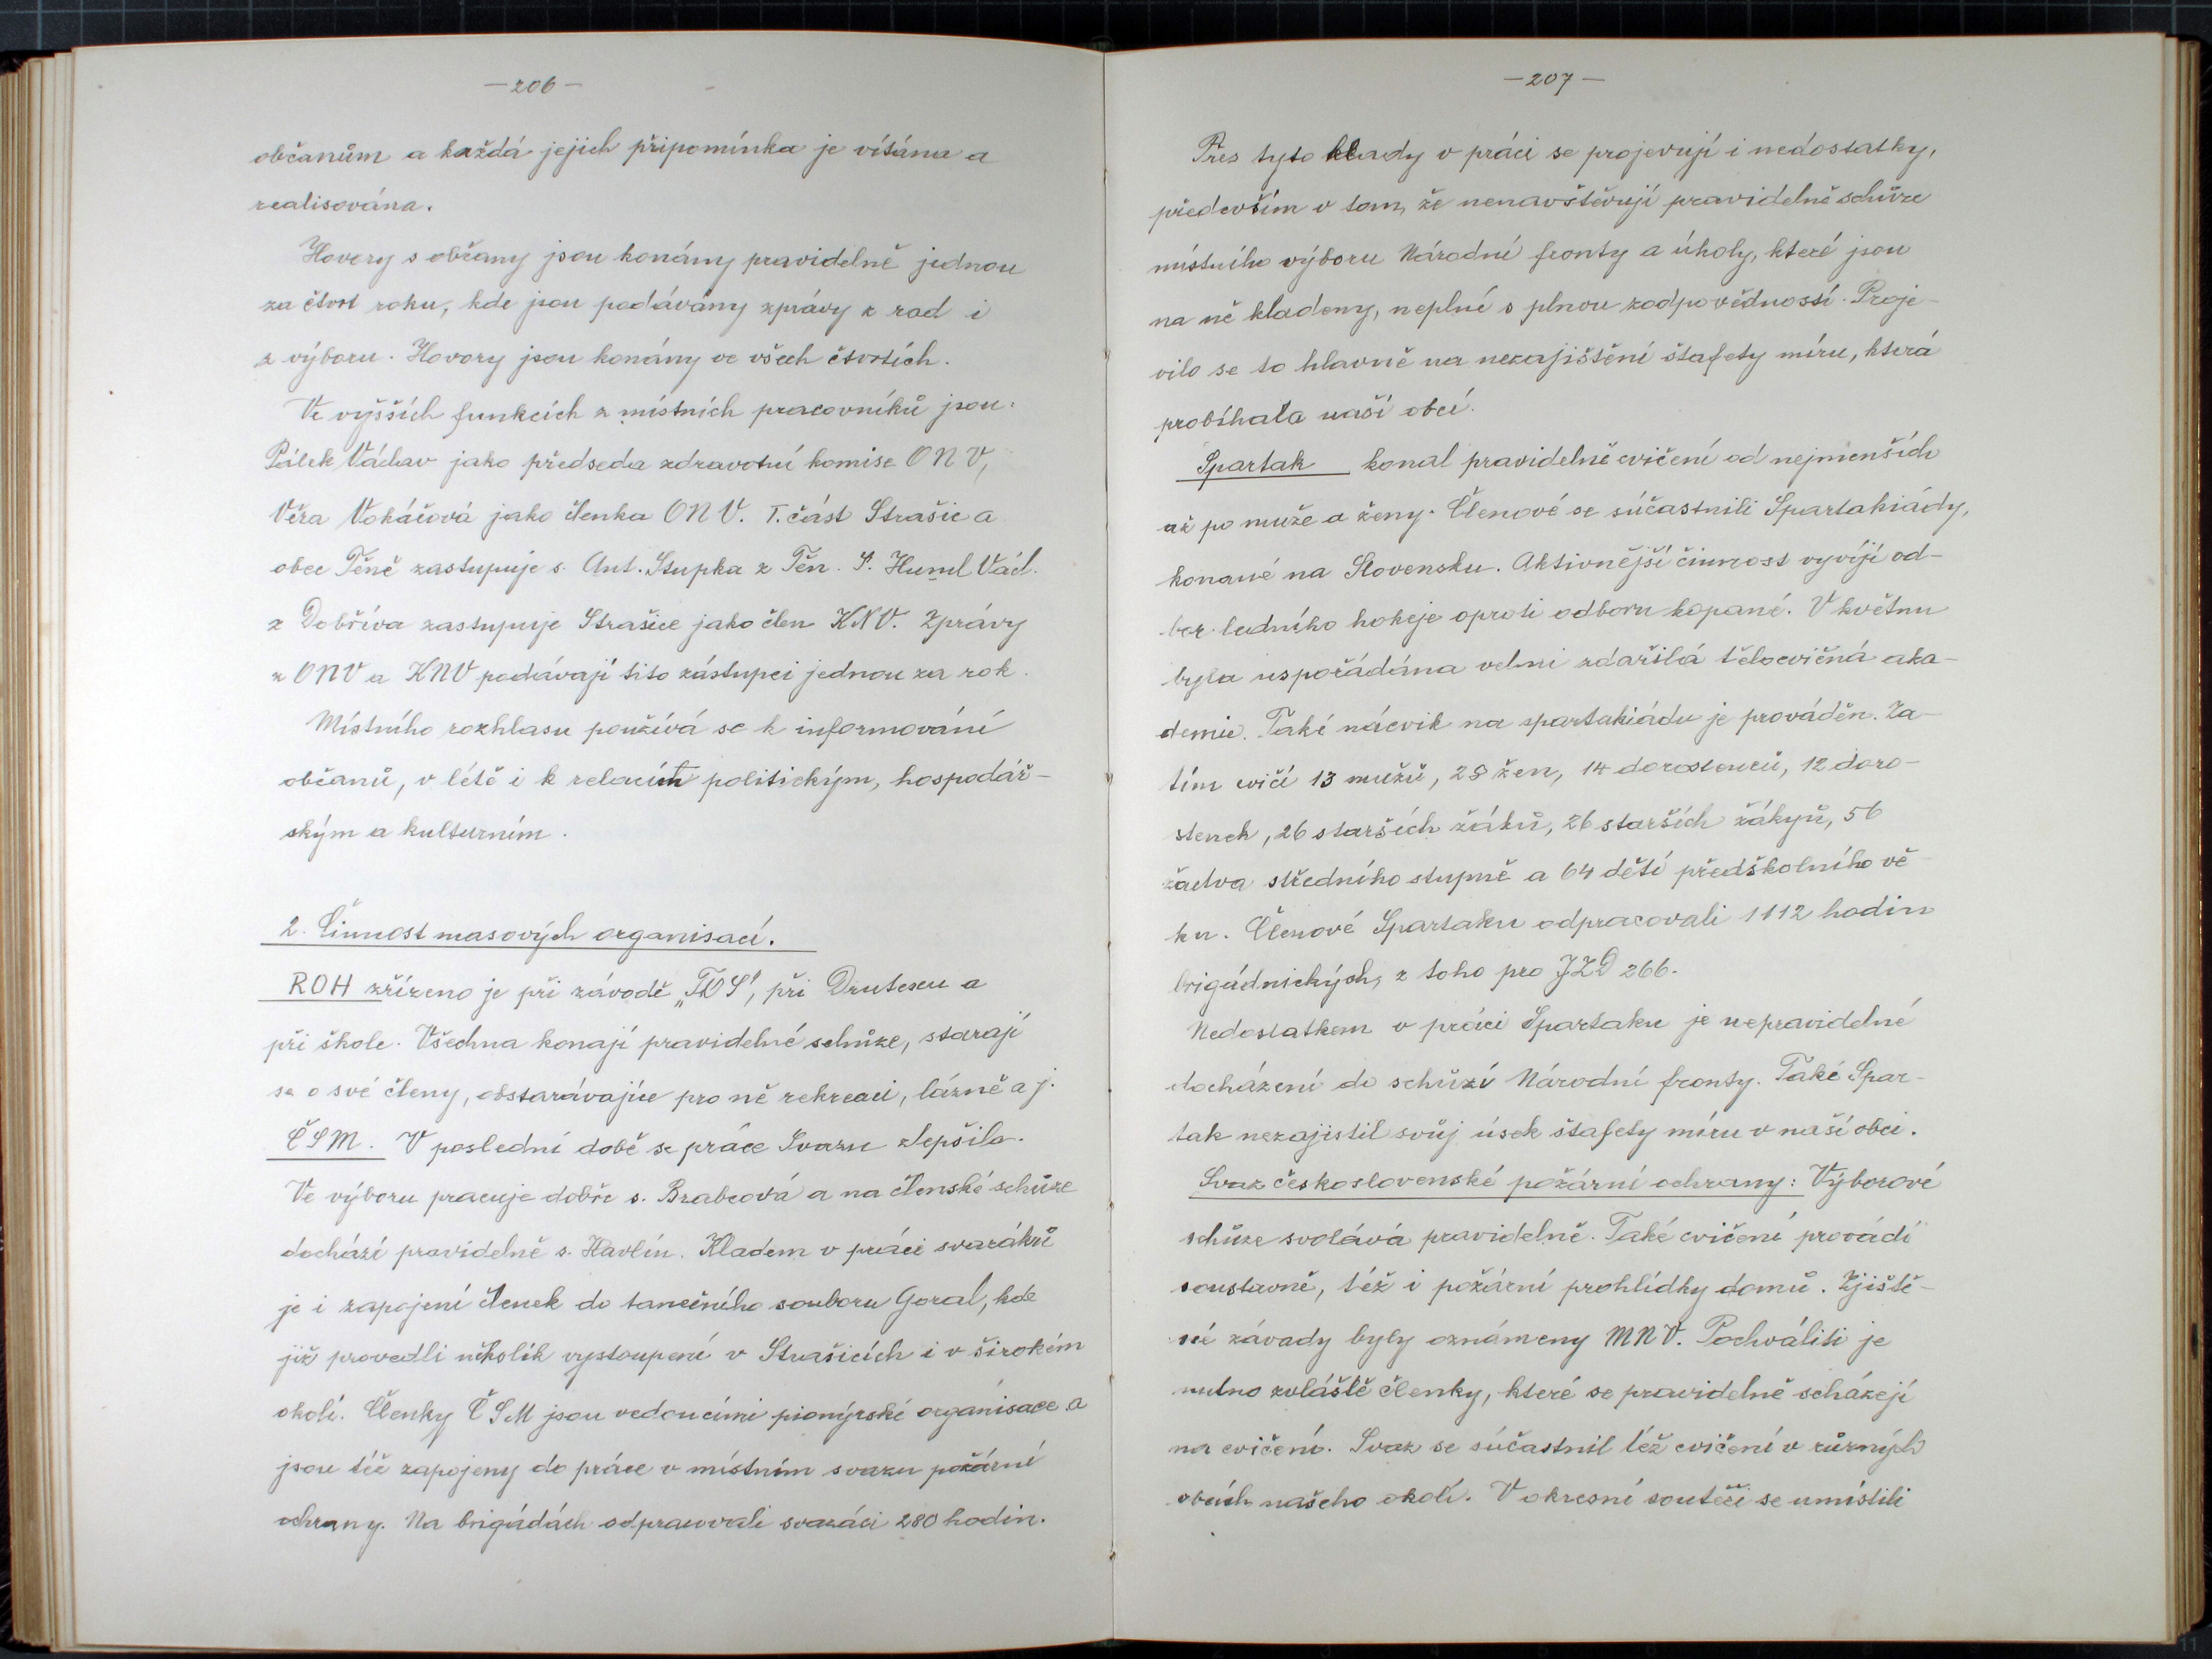 —206—
občanům a každá jejich připomínka je vítána a
realisována.
Hovory s občany jsou konány pravidelně jednou
za čtvrt roku, kde jsou podávány zprávy z rad i
z výboru. Hovory jsou konány ve všech čtvrtích.
Ve vyšších funkcích z místních pracovníků jsou:
Pálek Václav jako předseda zdravotní komise ONV,
Věra Vokáčová jako členka ONV. I. část Strašic a
obce Těně zastupuje s. Ant. Stupka z Těn. S. Huml Václ.
z Dobříva zastupuje Strašice jako člen KNV. Zprávy
z ONV a KNV podávají tito zástupci jednou za rok.
Místního rozhlasu používá se k informování
občanů, v létě i k relacím politickým, hospodář-
ským a kulturním.
2. Činnost masových organisací.
ROH zřízeno je při závodě „TOS", při Drutescu a
při škole. Všechna konají pravidelné schůze, starají
se o své členy, obstarávajíce pro ně rekreaci, lázně a j.
ČSM. V poslední době se práce Svazu zlepšila.
Ve výboru pracuje dobře s. Brabcová a na členské schůze
dochází pravidelně s. Havlín. Kladem v práci svazáků
je i zapojení členek do tanečního souboru Goral, kde
již provedli několik vystoupení v Strašicích i v širokém
okolí. Členky ČSM jsou vedoucími pionýrské organisace a
jsou též zapojeny do práce v místním svazu požární
ochrany. Na brigádách odpracovali svazáci 280 hodin.
—207—
Přes tyto klady v práci se projevují i nedostatky,
především v tom, že nenavštěvují pravidelně schůze
místního výboru Národní fronty a úkoly, které jsou
na ně kladeny, neplní s plnou zodpovědností. Proje-
vilo se to hlavně na nezajištění štafety míru, která
probíhala naší obcí.
Spartak konal pravidelně cvičení od nejmenších
až po muže a ženy. Členové se súčastnili Spartakiády,
konané na Slovensku. Aktivnější činnost vyvíjí od-
bor ledního hokeje oproti odboru kopané. V květnu
byla uspořádána velmi zdařilá tělocvičná aka-
demie. Také nácvik na spartakiádu je prováděn. Za-
tím cvičí 13 mužů, 28 žen, 14 dorostenců, 12 doro-
stenek, 26 starších žáků, 26 starších žákyň, 56
žactva středního stupně a 64 dětí předškolního vě-
ku. Členové Spartaku odpracovali 1112 hodin
brigádnických, z toho pro JZD 266.
Nedostatkem v práci Spartaku je nepravidelné
docházení do schůzí Národní fronty. Také Spar-
tak nezajistil svůj úsek štafety míru v naší obci.
Svaz československé požární ochrany: Výborové
schůze svolává pravidelně. Také cvičení provádí
soustavně, též i požární prohlídky domů. Zjiště-
né závady byly oznámeny MNV. Pochváliti je
nutno zvláště členky, které se pravidelně scházejí
na cvičení. Svaz se súčastnil též cvičení v různých
obcích našeho okolí. V okresní soutěži se umístili